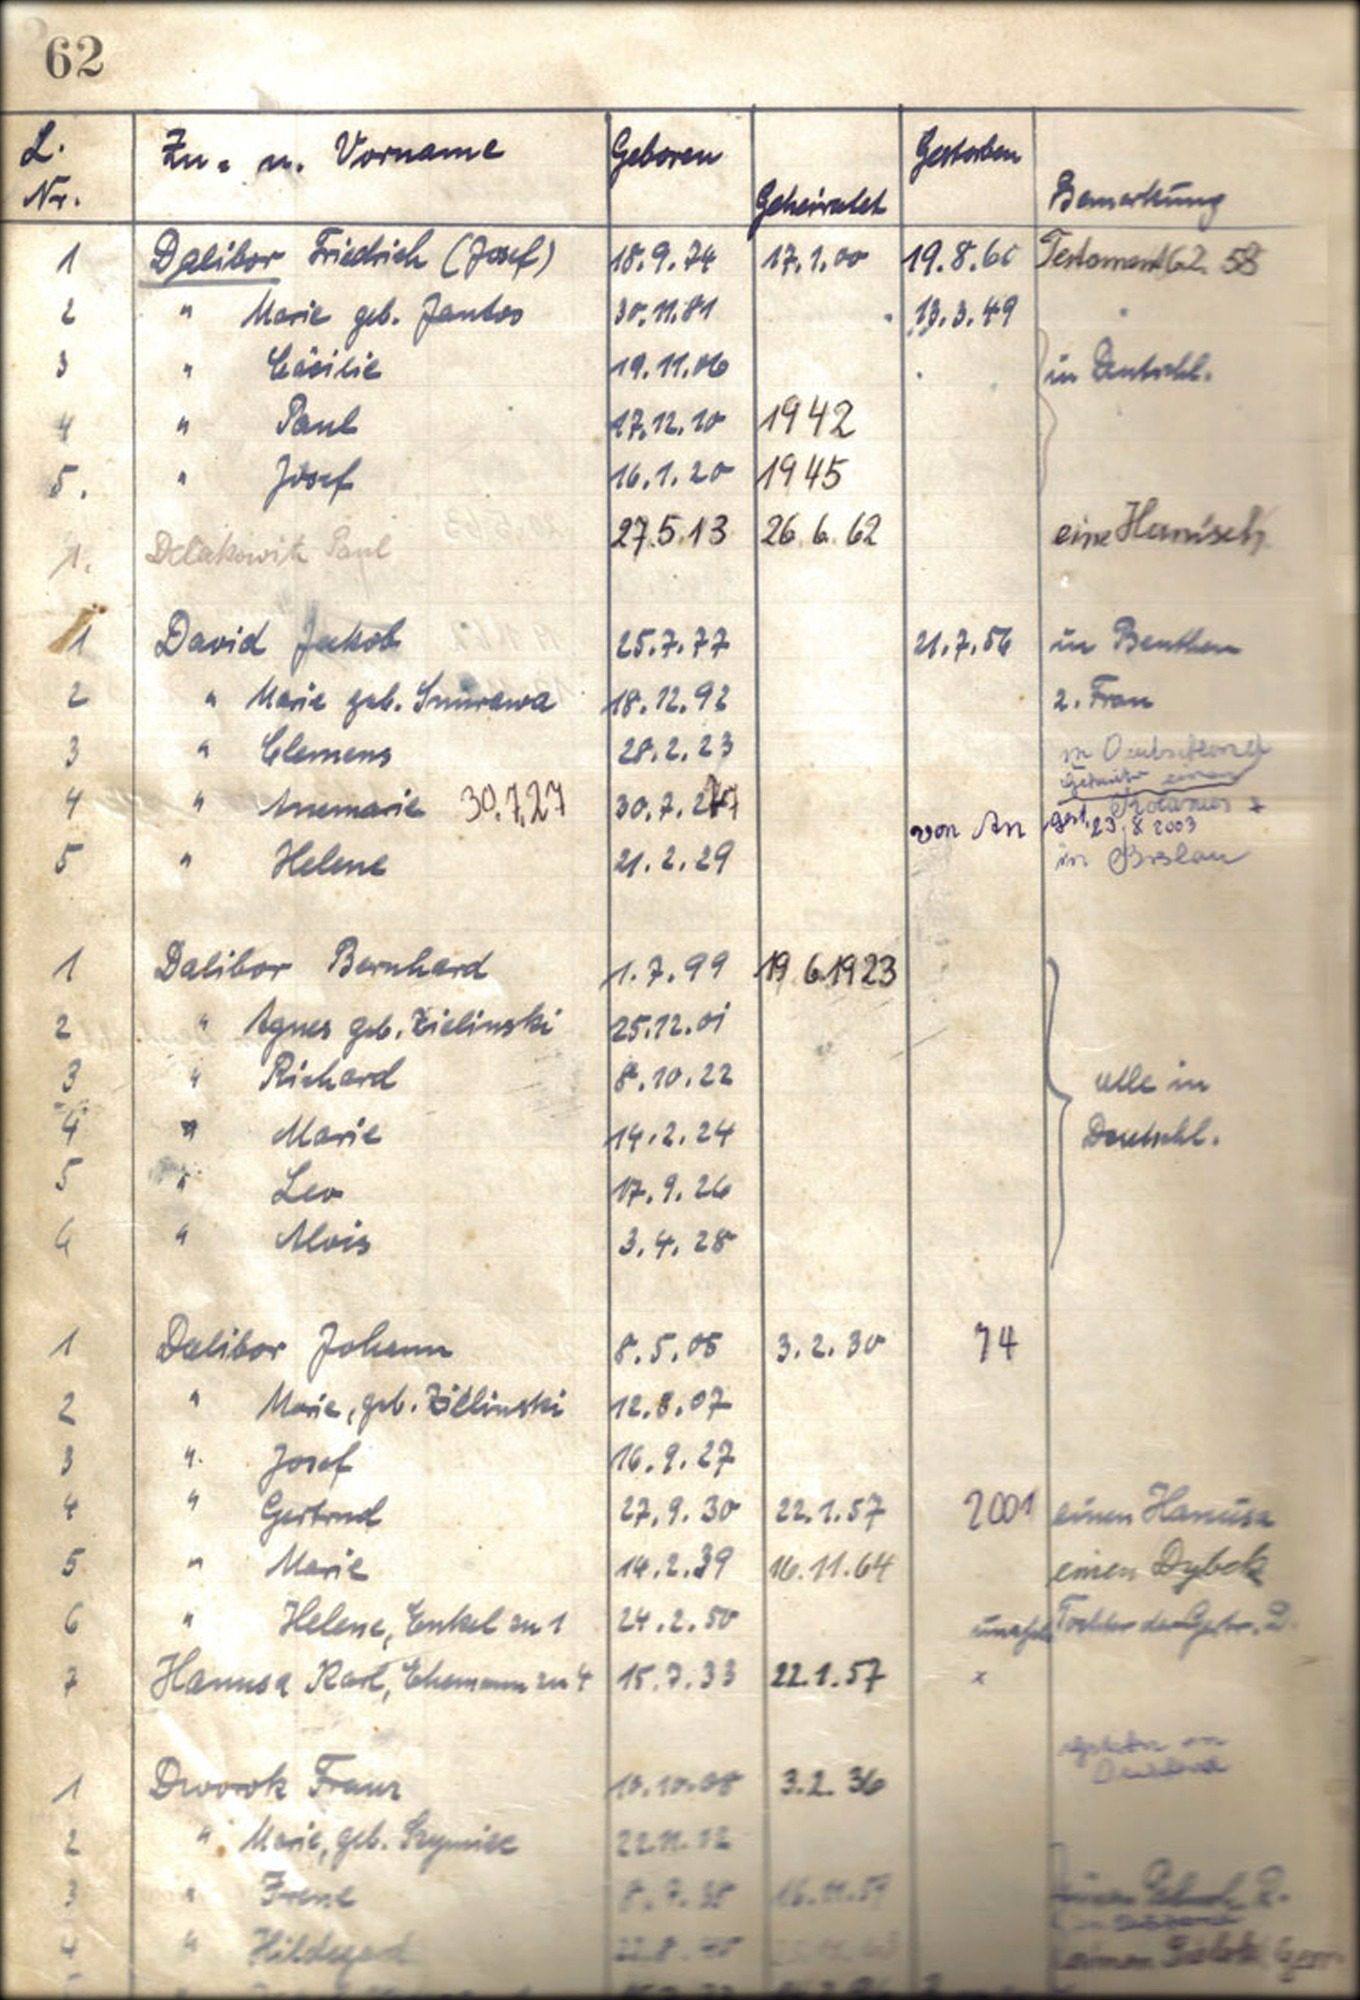 62
L. Nr. Zu- u. Vorname Geboren Geheiratet Gestorben Bemerkung
1 Dalibor Friedrich (Josef) 18.9.74 17.1.00 19.8.66 Testament 62. 58
2 " Marie geb. Jantos 30.11.81 13.3.49
3 " Cäcilie 19.11.06 in Deutschl.
4 " Paul 17.12.10 1942
5. " Josef 16.1.20 1945
1. Paul 27.5.13 26.6.62 eine Hanisch
1 David Jakob 25.7.77 21.7.56 in Beuthen
2 " Marie geb. Smurawa 18.12.92 2. Frau
3 " Clemens 28.2.23 in Deutschland
4 " Annemarie 30.7.27 30.7.27 von An gest. 23.8 2003
5 " Helene 21.2.29 in Breslau
1 Dalibor Bernhard 1.7.99 19 6.1923
2 " Agnes geb. Zielinski 25.12.01
3 " Richard 8.10.22 alle in
4 " Marie 14.2.24 Deutschl.
5 " Leo 17.9.26
6 " Alois 3.4.28
1 Dalibor Johann 8.5.05 3.2.30 74
2 " Marie, geb. Zielinski 12.8.07
3 " Josef 16.9.27
4 " Gertrud 27.9.30 22.1.57 2001 einen Hanusa
5 " Marie 14.2.39 16.11.64 einen Dybek
6 " Helene, Enkel zu 1 24.2.50 Tochter der Gertr. D.
7 Hanusa Karl, Ehemann zu 4 15.7.33 22.1.57 x
1 Dworok Franz 10.10.08 3.2.36
2 " Marie, geb. 22.11.12
3 " Irene
4 " Hildegard einen